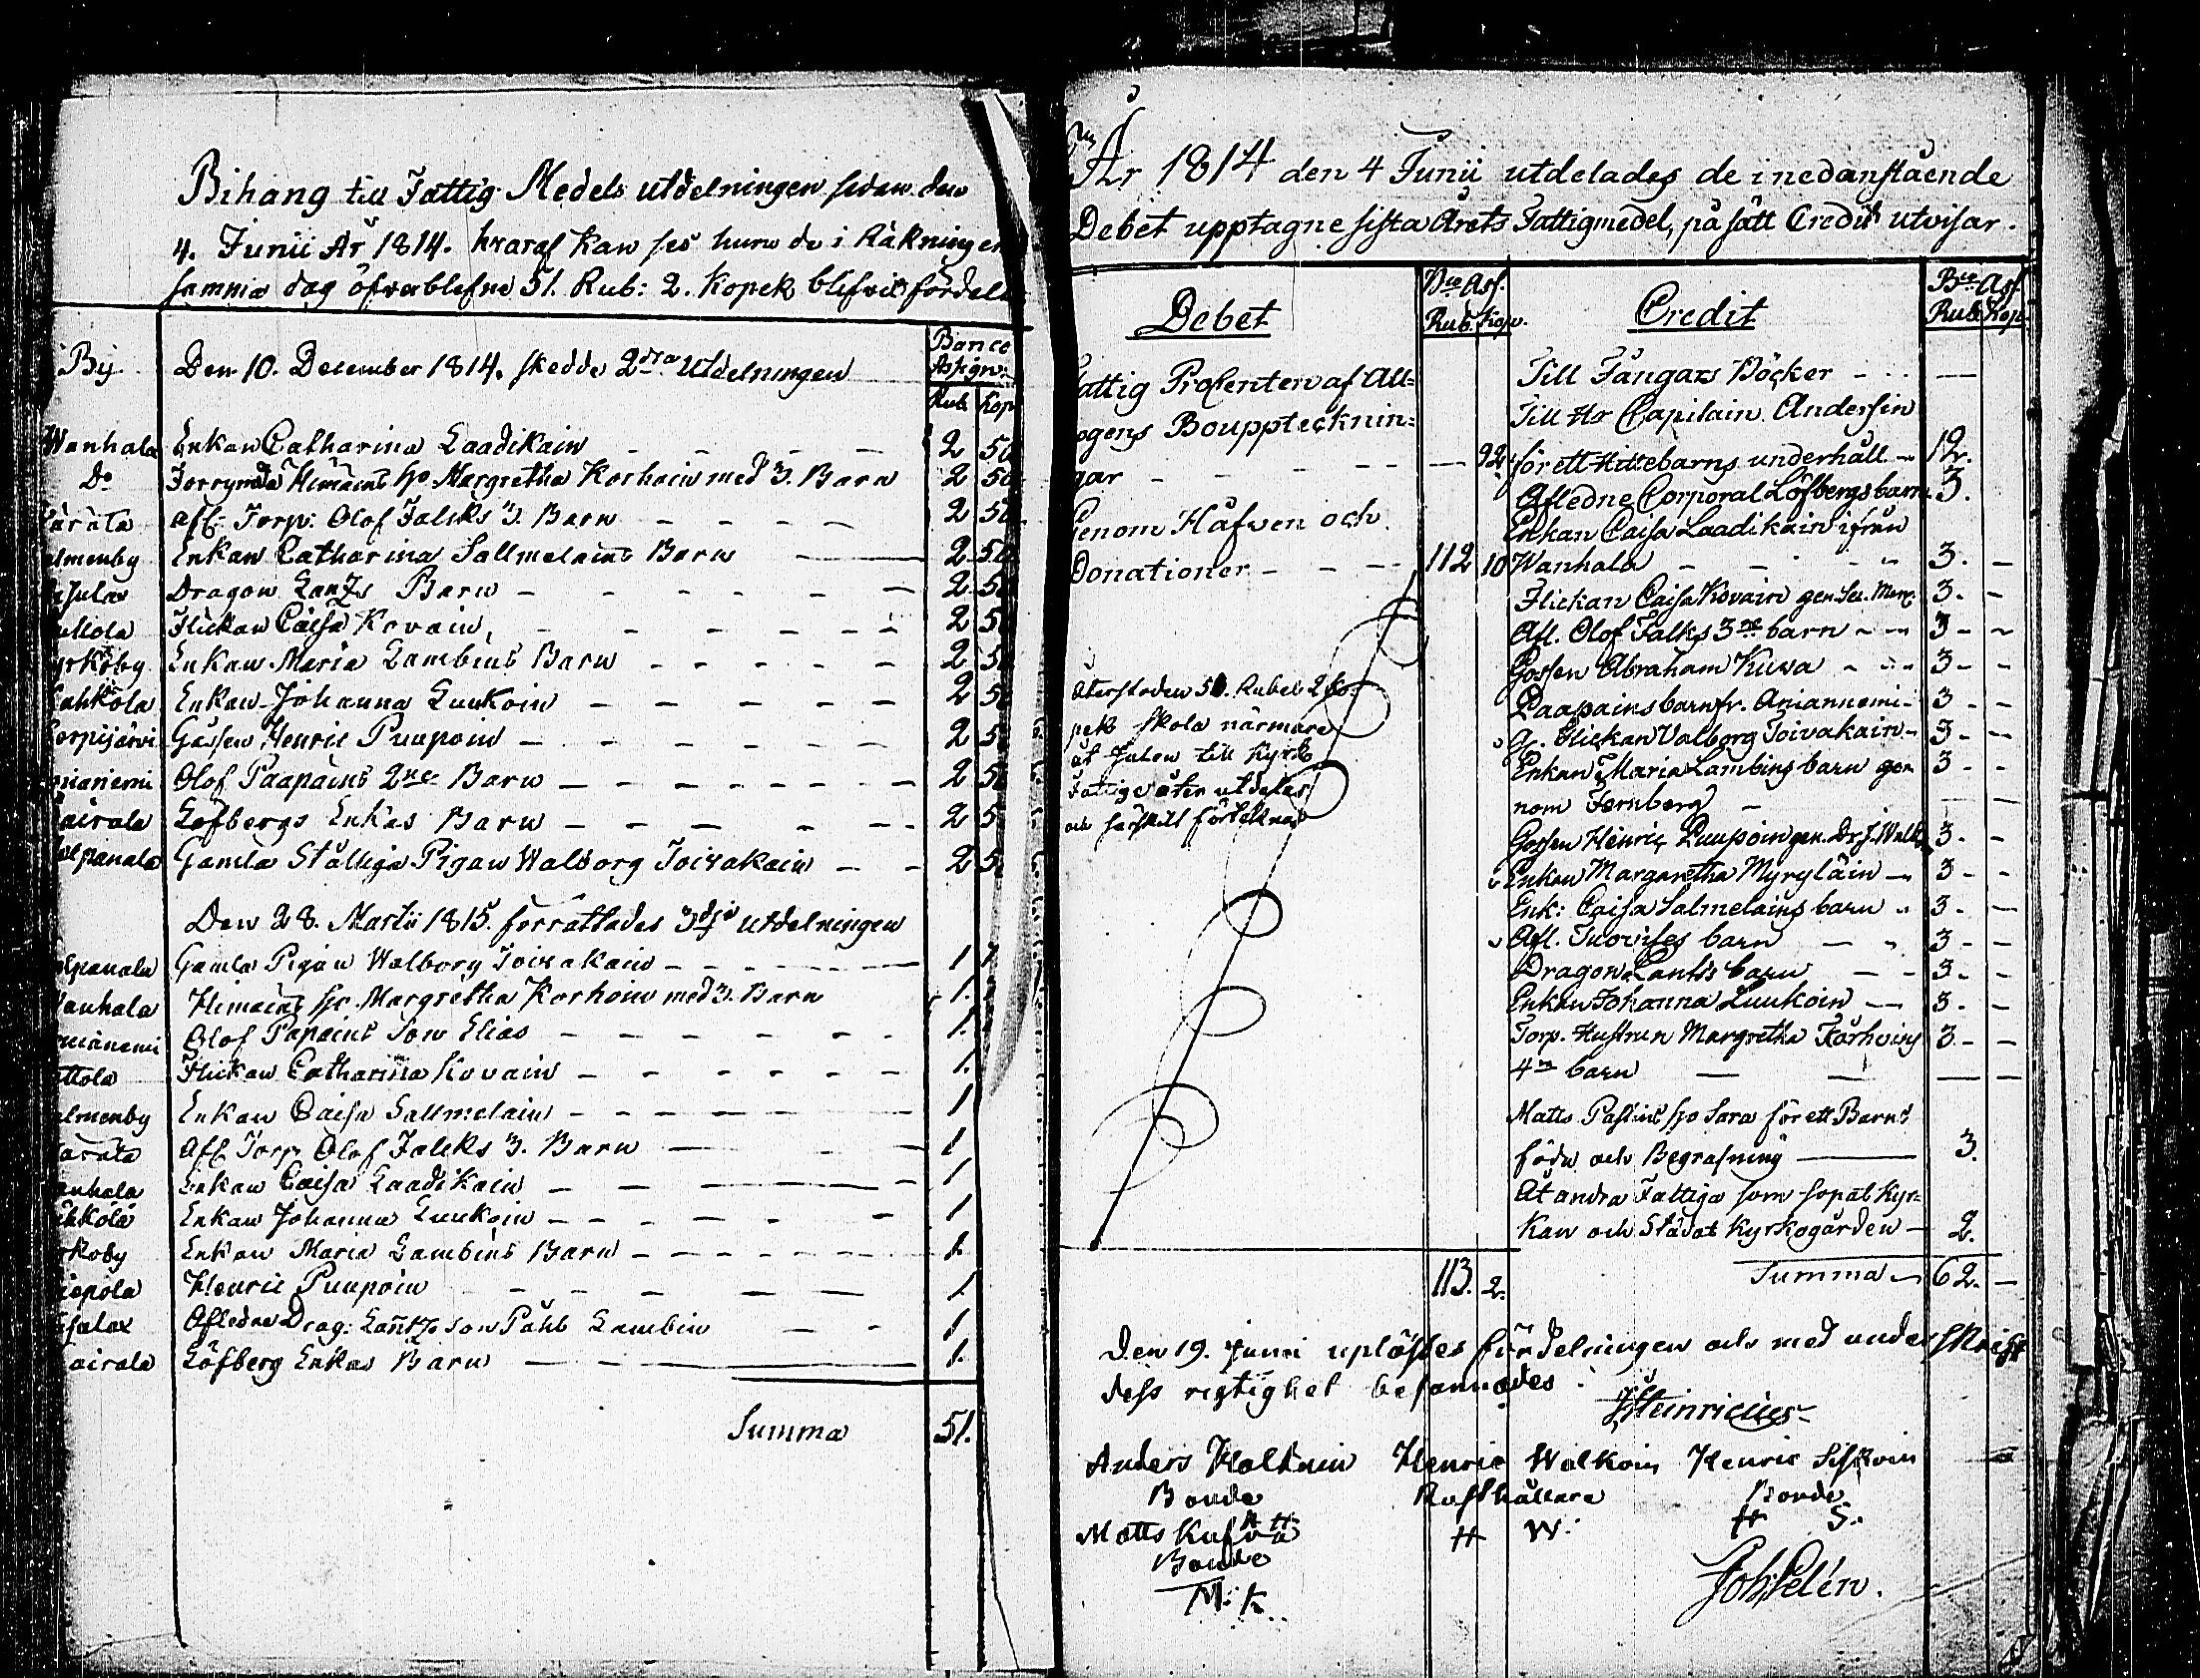 Bihang till Fattig Medels utdelningen sedan den
4. Junii År 1814. hvaraf kan ses huru de i Räkningen
samma dag öfverblefne 51. Rub: 2. Kopek blifvit fördel
By. Den 10. December 1814. skedde 2dra Utdelningen Banco Assign:
Rub Kop
Wanhala Enkan Catharina Laadikain - - - - 2 50
Do Torp Himains h:o Margretha Korhoin med 3. Barn 2 50
ärätä Afl: Torp: Olof Falcks 3. Barn - - - - 2 50
lmenby Enkan Catharina Sallmelains Barn 2 50
sulax Dragon Lantz Barn - - - - - - 2 5
ullola Flickan Caisa Kovain, - - - - - - 2 5
yrkoby Enkan Maria Lambins Barn - - - - - 2 5
ahkola Enkan Johanna Luukoin - - - - - - 2 5
orpijärvi Gossen Henric Puupoin - - - - - - 2 5
nianiemi Olof Paapains 2ne Barn - - - - - - - 2 5
airala Löfbergs Enkas Barn - - - - - 2 5
lpanala Gamla Ställiga Pigan Walborg Toivakain - - 2 5
Den 28. Martii 1815. förrättades 3dje utdelningen
lpanala Gamla Pigan Walborg Toivakain - - - - - 1
anhala Himains h:o Margretha Korhoin med 3. Barn 1.
nianemi Olof Papains Son Elias - - - - - - 1.
ttola Flickan Catharina Kovain - - - - - - 1.
lmenby Enkan Caisa Sallmelain - - - - - - - 1
ärätä Afl Torp Olof Falcks 3. Barn - - - - 1
anhala Enkan Caisa Laadikain - - - - - 1
ahkola Enkan Johanna Luukoin - - - - - - 1
rkoby Enkan Maria Lambins Barn - - - - - - - 1.
iepola Henric Puupoin - - - - - - 1.
sulax Afledne Drag: Lantz son Påhl Lambin - - 1
airala Löfberg Enkas Barn - - 1.
Summa 51.
År 1814 den 4 Junii utdelades de i nedanstående
Debet upptagne sista Årets Fattigmedel, på sätt Credit utvisar.
Debet Bco Ass. Rub. Kop. Credit Bco Ass. Rub. Kop.
attig Procenten af All=
ogens Bouppteknin=
gar - - - - - - 92
Genom Håfven och
Donationer - - - - 112 10
Återstoden 51. Rubel 2 Ko=
pek skola närmare
åt Julen till Kyrk
Fattige åter utdelas
och särskilt förteknas
113. 2.
Till Fångars Böcker - - - —
Till Hr Capitain Andersin
för ett Hittebarns underhåll - 12.
Afledne Corporal Löfbergs barn 3.
Enkan Caisa Laadikain ifrån
Wanhala - - - - - 3. -
Flickan Caisa Kovain gen 3. -
Afl. Olof Falks 3ne barn - - - 3 - -
Gossen Abraham Kuwa - - - 3 - -
Paapains barn fr. Anianniemi - 3 - -
Flickan Valborg Toivakain - 3 - -
Enkan Maria Lambins barn ge= 3 - -
nom Fernberg - - -
Gossen Henric Puupoin gen. 3 - -
Enkan Margaretha Myryläin - 3 - -
Enk: Caisa Salmelains barn - 3 - -
Afl. barn - - 3 - -
Dragon Lantz's barn - - 3 - -
Enkan Johanna Luukoin - - 3 - -
Torp. Hustrun Margretha Korhoins 3 - -
4ra barn — — — -
Matts h:o Sara för ett Barns
föda och Begrafning — 3.
Åt andra Fattiga som sopat Kyr=
kan och Städat Kyrkogården - 2.
Summa - 62. -
Den 19. Junii uplästes fördelningen och med underskrift
dess rigtighet besannades.
Heinricius
Anders Henric Walkoin Henric
Bonde Rusthållare Bonde
Matts H W. H S.
Bonde
M: K.